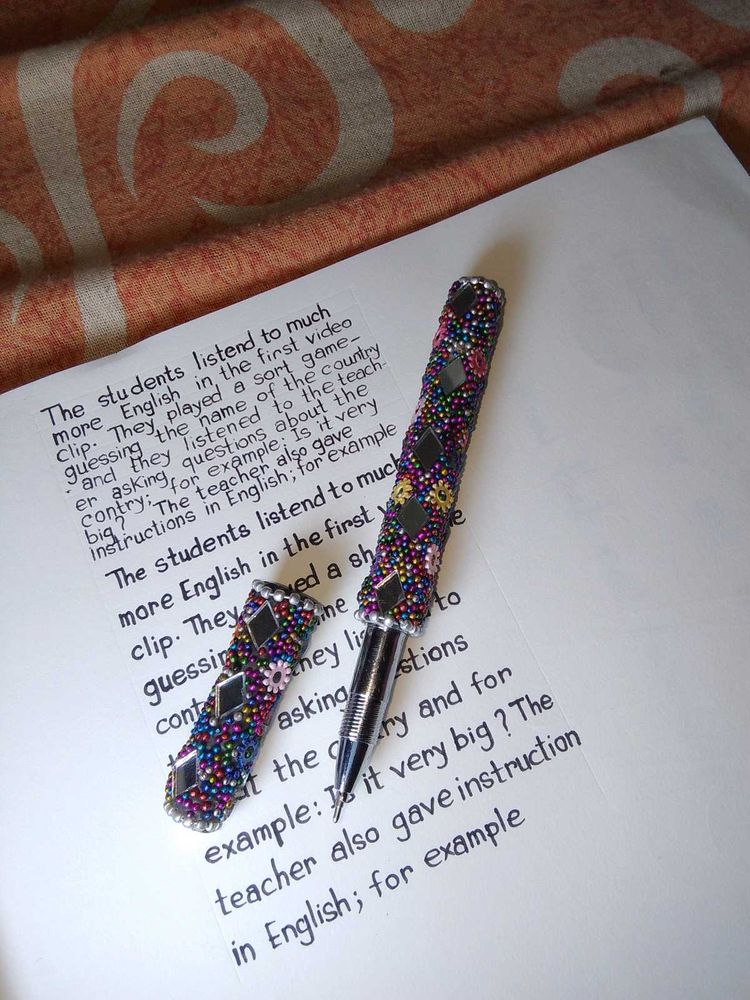 The students listend to much
more English in the first video
clip. They played a sort game_
guessing the name of the country
and they listened to the teach-
er asking questions about the
contry; for example: Is it very
big? The teacher also gave
instructions in English; for example
The students listend to much
more English in the first
clip. They a
guessing
asking
the and for
example: Is it very big? The
teacher also gave instruction
in English; for example